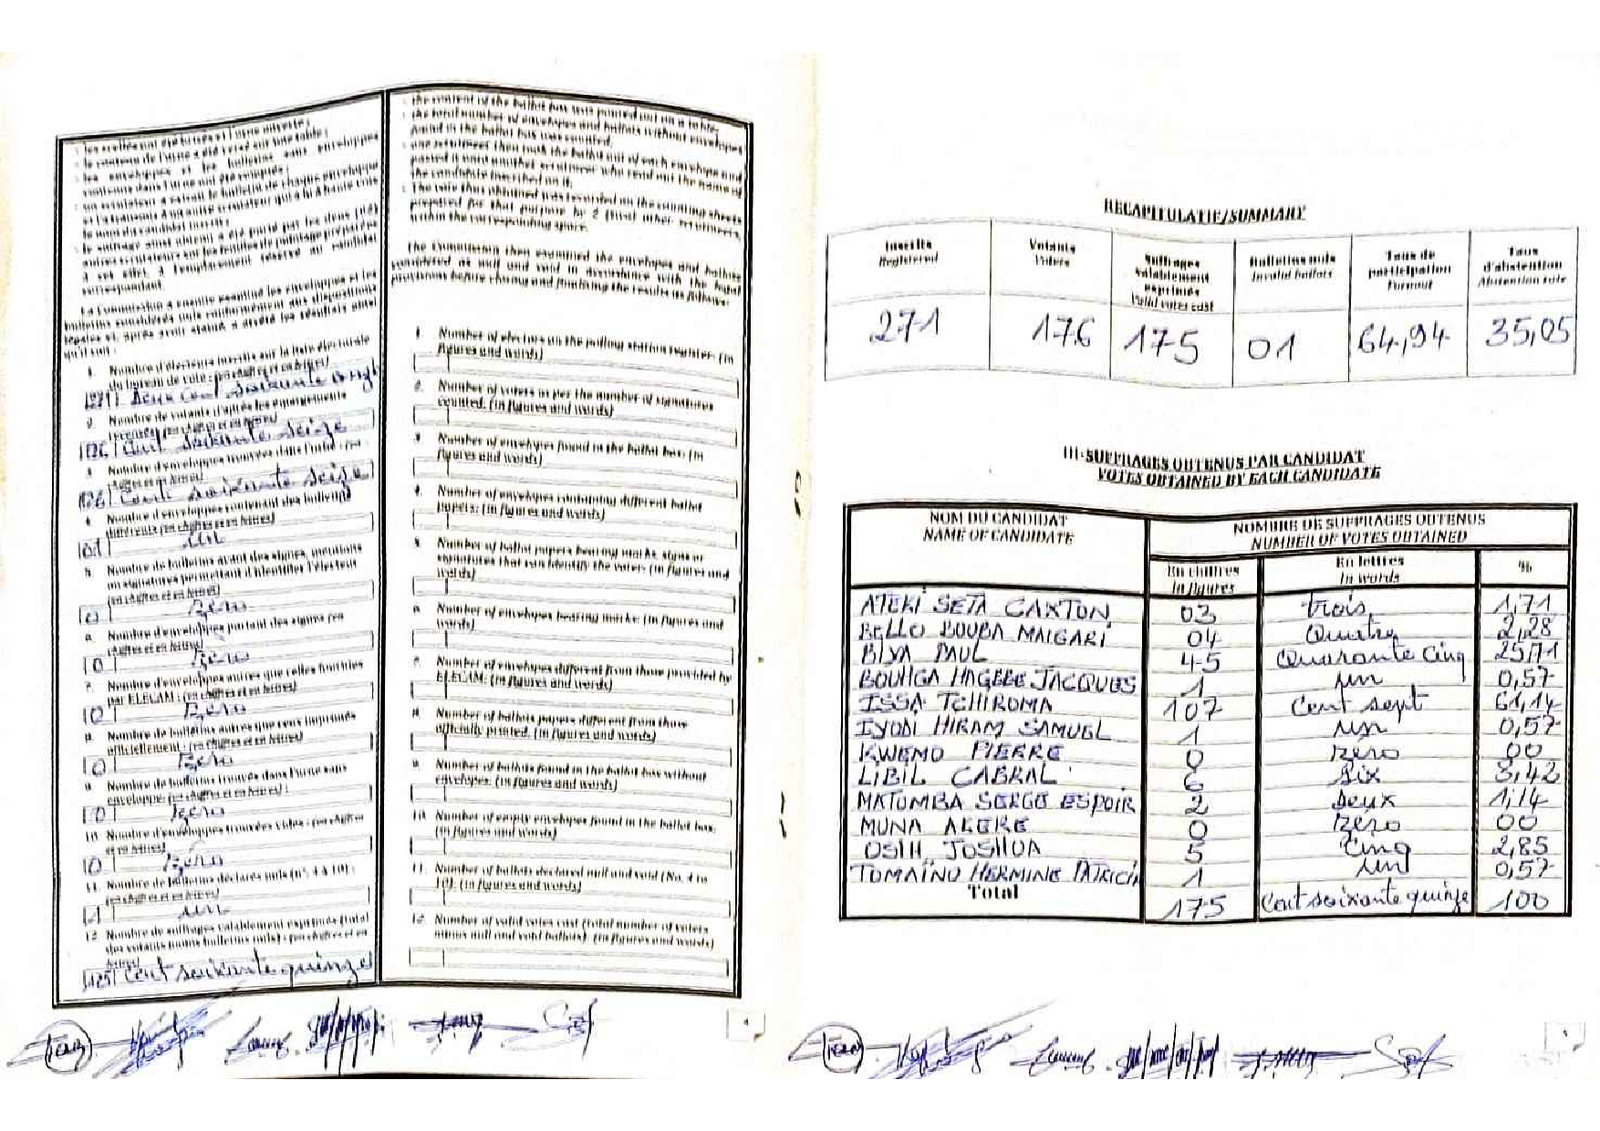 - les scellés ont été brisés et l'urne ouverte ;
- le contenu de l'urne a été versé sur une table ;
- les enveloppes et les bulletins sans enveloppes
contenus dans l'urne ont été comptés ;
- un scrutateur a extrait le bulletin de chaque enveloppe
et l'a transmis à un autre scrutateur qui a lu à haute voix
le nom du candidat inscrit ;
- le suffrage ainsi obtenu a été porté par les deux (02)
autres scrutateurs sur les feuilles de pointage préparées
à cet effet, à l'emplacement réservé au candidat
correspondant.
La Commission a ensuite examiné les enveloppes et les
bulletins considérés nuls conformément aux dispositions
légales et, après avoir statué a arrêté les résultats ainsi
qu'il suit :
1. Nombre d'électeurs inscrits sur la liste électorale
du bureau de vote : (en chiffres et en lettres)
2. Nombre de votants d'après les émargements
Cent soixante seize
3. Nombre d'enveloppes trouvées dans l'urne : (en
chiffres et en lettres)
Cent soixante seize
4. Nombre d'enveloppes contenant des bulletins
différents (en chiffres et en lettres)
01 un
5. Nombre de bulletins ayant des signes, mentions
ou signatures permettant d'identifier l'électeur
(en chiffres et en lettres)
0 Zéro
6. Nombre d'enveloppes portant des signes (en
chiffres et en lettres)
0 Zéro
7. Nombre d'enveloppes autres que celles fournies
par ELECAM : (en chiffres et en lettres)
0 Zéro
8. Nombre de bulletins autres que ceux imprimés
officiellement : (en chiffres et en lettres)
0 Zéro
9. Nombre de bulletins trouvés dans l'urne sans
enveloppe (en chiffres et en lettres) :
0 Zéro
10. Nombre d'enveloppes trouvées vides : (en chiffres
et en lettres)
0 Zéro
11. Nombre de bulletins déclarés nuls (n°. 4 à 10) :
(en chiffres et en lettres)
1 un
12. Nombre de suffrages valablement exprimés (total
des votants moins bulletins nuls) : (en chiffres et en
lettres)
175 Cent soixante quinze
- the content of the ballot box was poured out on a table;
- the total number of envelopes and ballots without envelopes
found in the ballot box was counted;
- one scrutineer then took the ballot out of each envelope and
passed it unto another scrutineer who read out the name of
the candidate inscribed on it;
- The vote thus obtained was recorded on the counting sheets
prepared for that purpose by 2 (two) other scrutineers,
within the corresponding space.
The Commission then examined the envelopes and ballots
considered as null and void in accordance with the legal
provisions before closing and finalising the results as follows:
1. Number of electors on the polling station register: (in
figures and words)
2. Number of voters as per the number of signatures
counted. (in figures and words)
3. Number of envelopes found in the ballot box: (in
figures and words)
4. Number of envelopes containing different ballot
papers: (in figures and words)
5. Number of ballot papers bearing marks, signs or
signatures that can identify the voter: (in figures and
words)
6. Number of envelopes bearing marks: (in figures and
words)
7. Number of envelopes different from those provided by
ELECAM: (in figures and words)
8. Number of ballots papers different from those
officially printed. (in figures and words)
9. Number of ballots found in the ballot box without
envelopes: (in figures and words)
10. Number of empty envelopes found in the ballot box:
(in figures and words)
11. Number of ballots declared null and void (No. 4 to
10): (in figures and words)
12. Number of valid votes cast (total number of voters
minus null and void ballots): (in figures and words)
4
RECAPITULATIF/SUMMARY
Inscrits Registered | Votants Voters | Suffrages valablement exprimés Valid votes cast | Bulletins nuls Invalid ballots | Taux de participation Turnout | Taux d'abstention Abstention rate
271 | 176 | 175 | 01 | 64,94 | 35,05
III-SUFFRAGES OBTENUS PAR CANDIDAT
VOTES OBTAINED BY EACH CANDIDATE
NOM DU CANDIDAT NAME OF CANDIDATE | NOMBRE DE SUFFRAGES OBTENUS NUMBER OF VOTES OBTAINED
En chiffres In figures | En lettres In words | %
ATEKI SETA CAXTON | 03 | trois | 1,71
BELLO BOUBA MAIGARI | 04 | Quatre | 2,28
BIYA PAUL | 45 | Quarante cinq | 25,71
BOUHGA HAGBE JACQUES | 1 | un | 0,57
ISSA TCHIROMA | 107 | Cent sept | 61,14
IYODI HIRAM SAMUEL | 1 | un | 0,57
KWEMO PIERRE | 0 | Zéro | 00
LIBII CABRAL | 6 | Six | 3,42
MATOMBA SERGE ESPOIR | 2 | deux | 1,14
MUNA AKERE | 0 | Zéro | 00
OSIH JOSHUA | 5 | Cinq | 2,85
TOMAÏNO HERMINE PATRICIA | 1 | un | 0,57
Total | 175 | Cent soixante quinze | 100